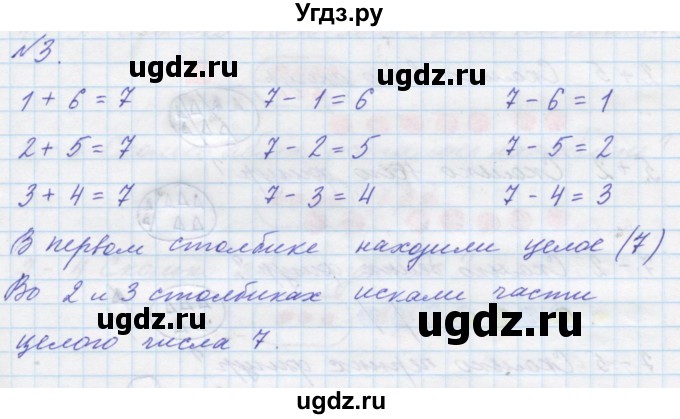 Угдз.ру
№3.
ugdz.ru ugdz.ru
1 + 6 = 7 7 - 1 = 6 7 - 6 = 1
2 + 5 = 7 7 - 2 = 5 7 - 5 = 2
ugdz.ru ugdz.ru
3 + 4 = 7 7 - 3 = 4 7 - 4 = 3
В первом столбике находили целое (7)
Во 2 и 3 столбиках искали части
ugdz.ru ugdz.ru
целого числа 7.
Угдз.ру